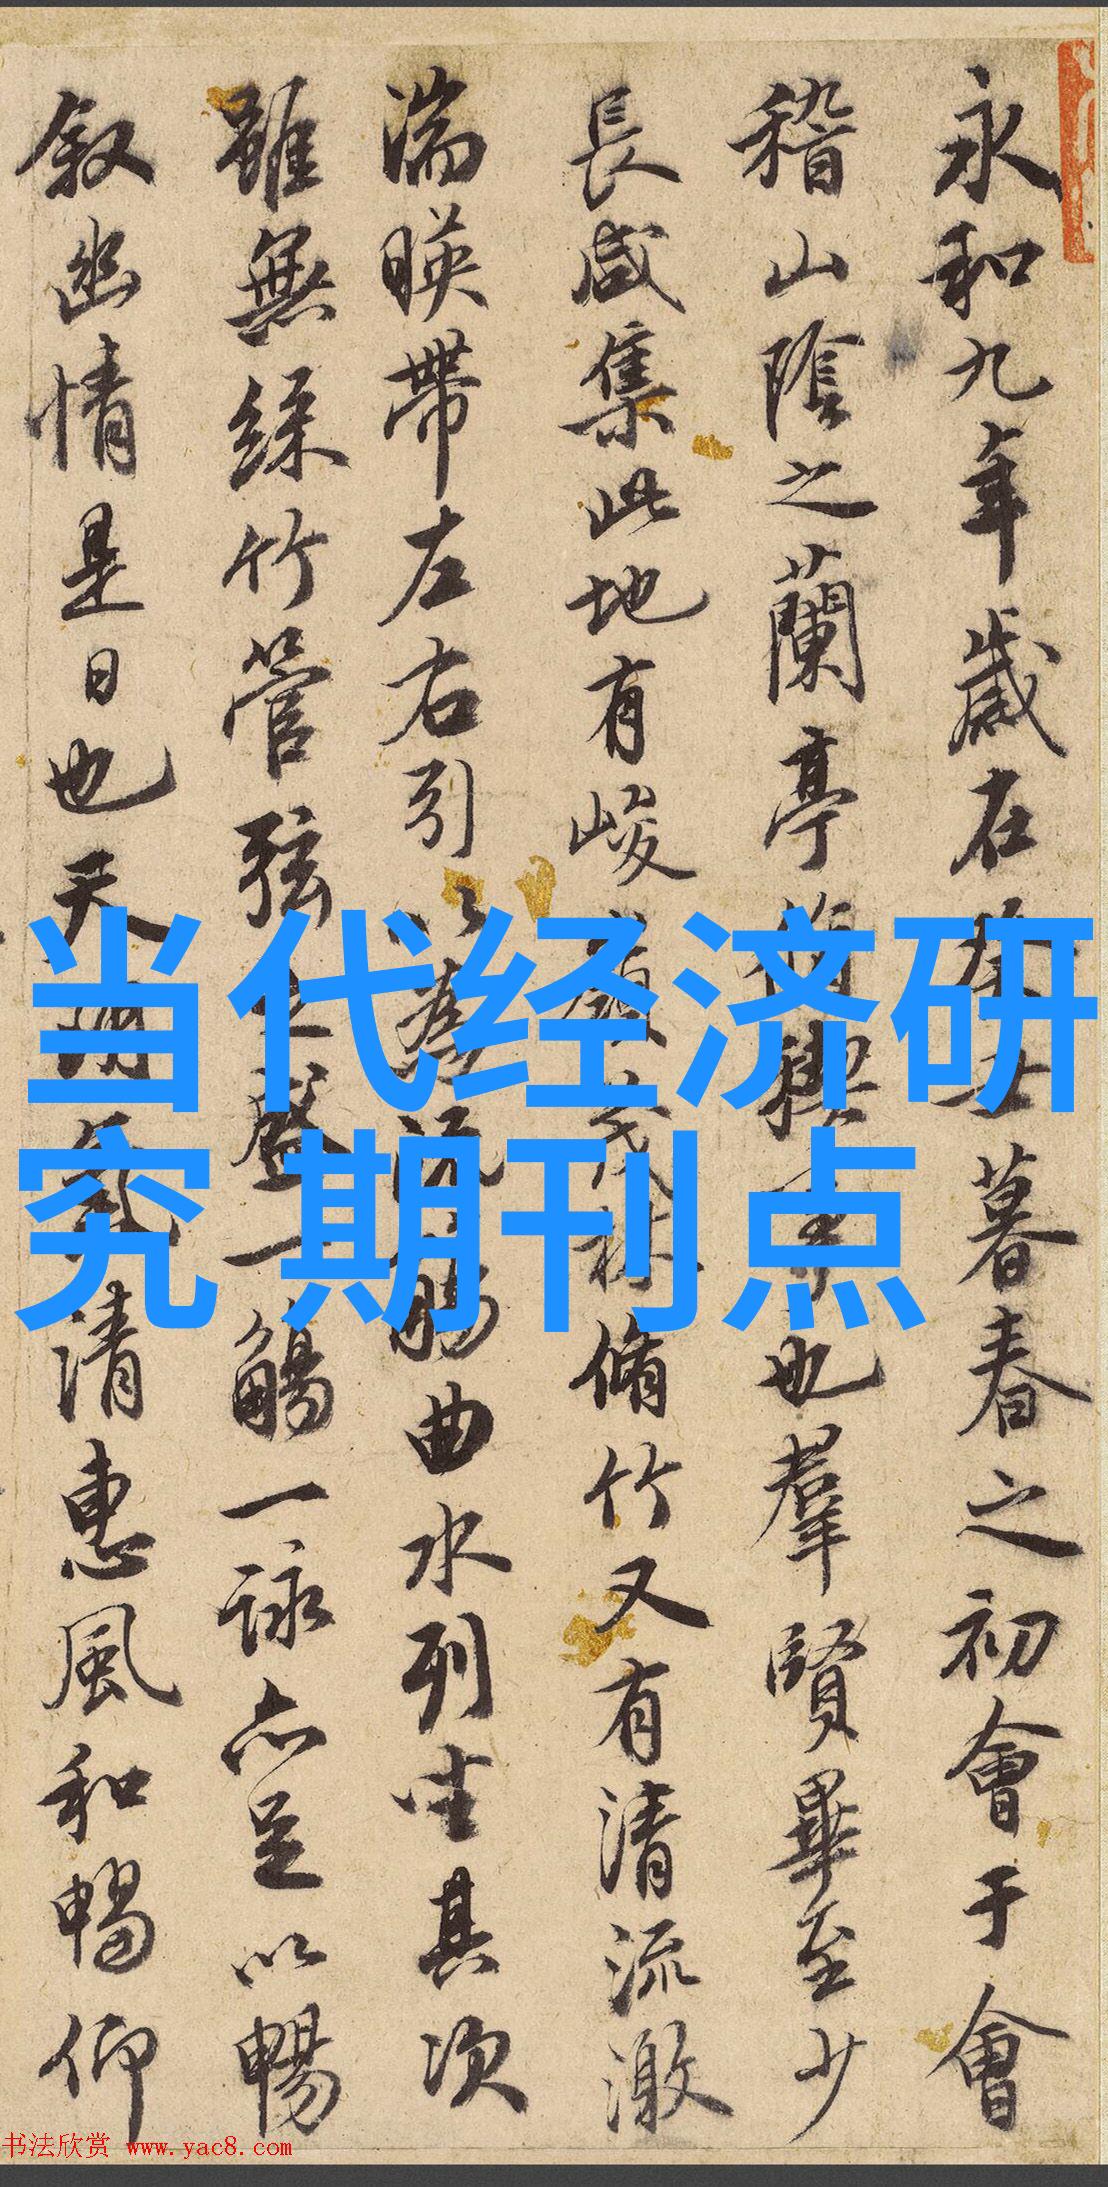 永和九年歲在癸丑暮春之初會于會
稽山陰之蘭亭脩禊事也羣賢畢至少
長咸集此地有峻領茂林脩竹又有清流激
湍暎帶左右引以為流觴曲水列坐其次
雖無絲竹管弦之盛一觴一詠亦足以暢
叙幽情是日也天朗氣清惠風和暢仰
当代经济研
究 期刊点
书法欣赏 www.yac8.com